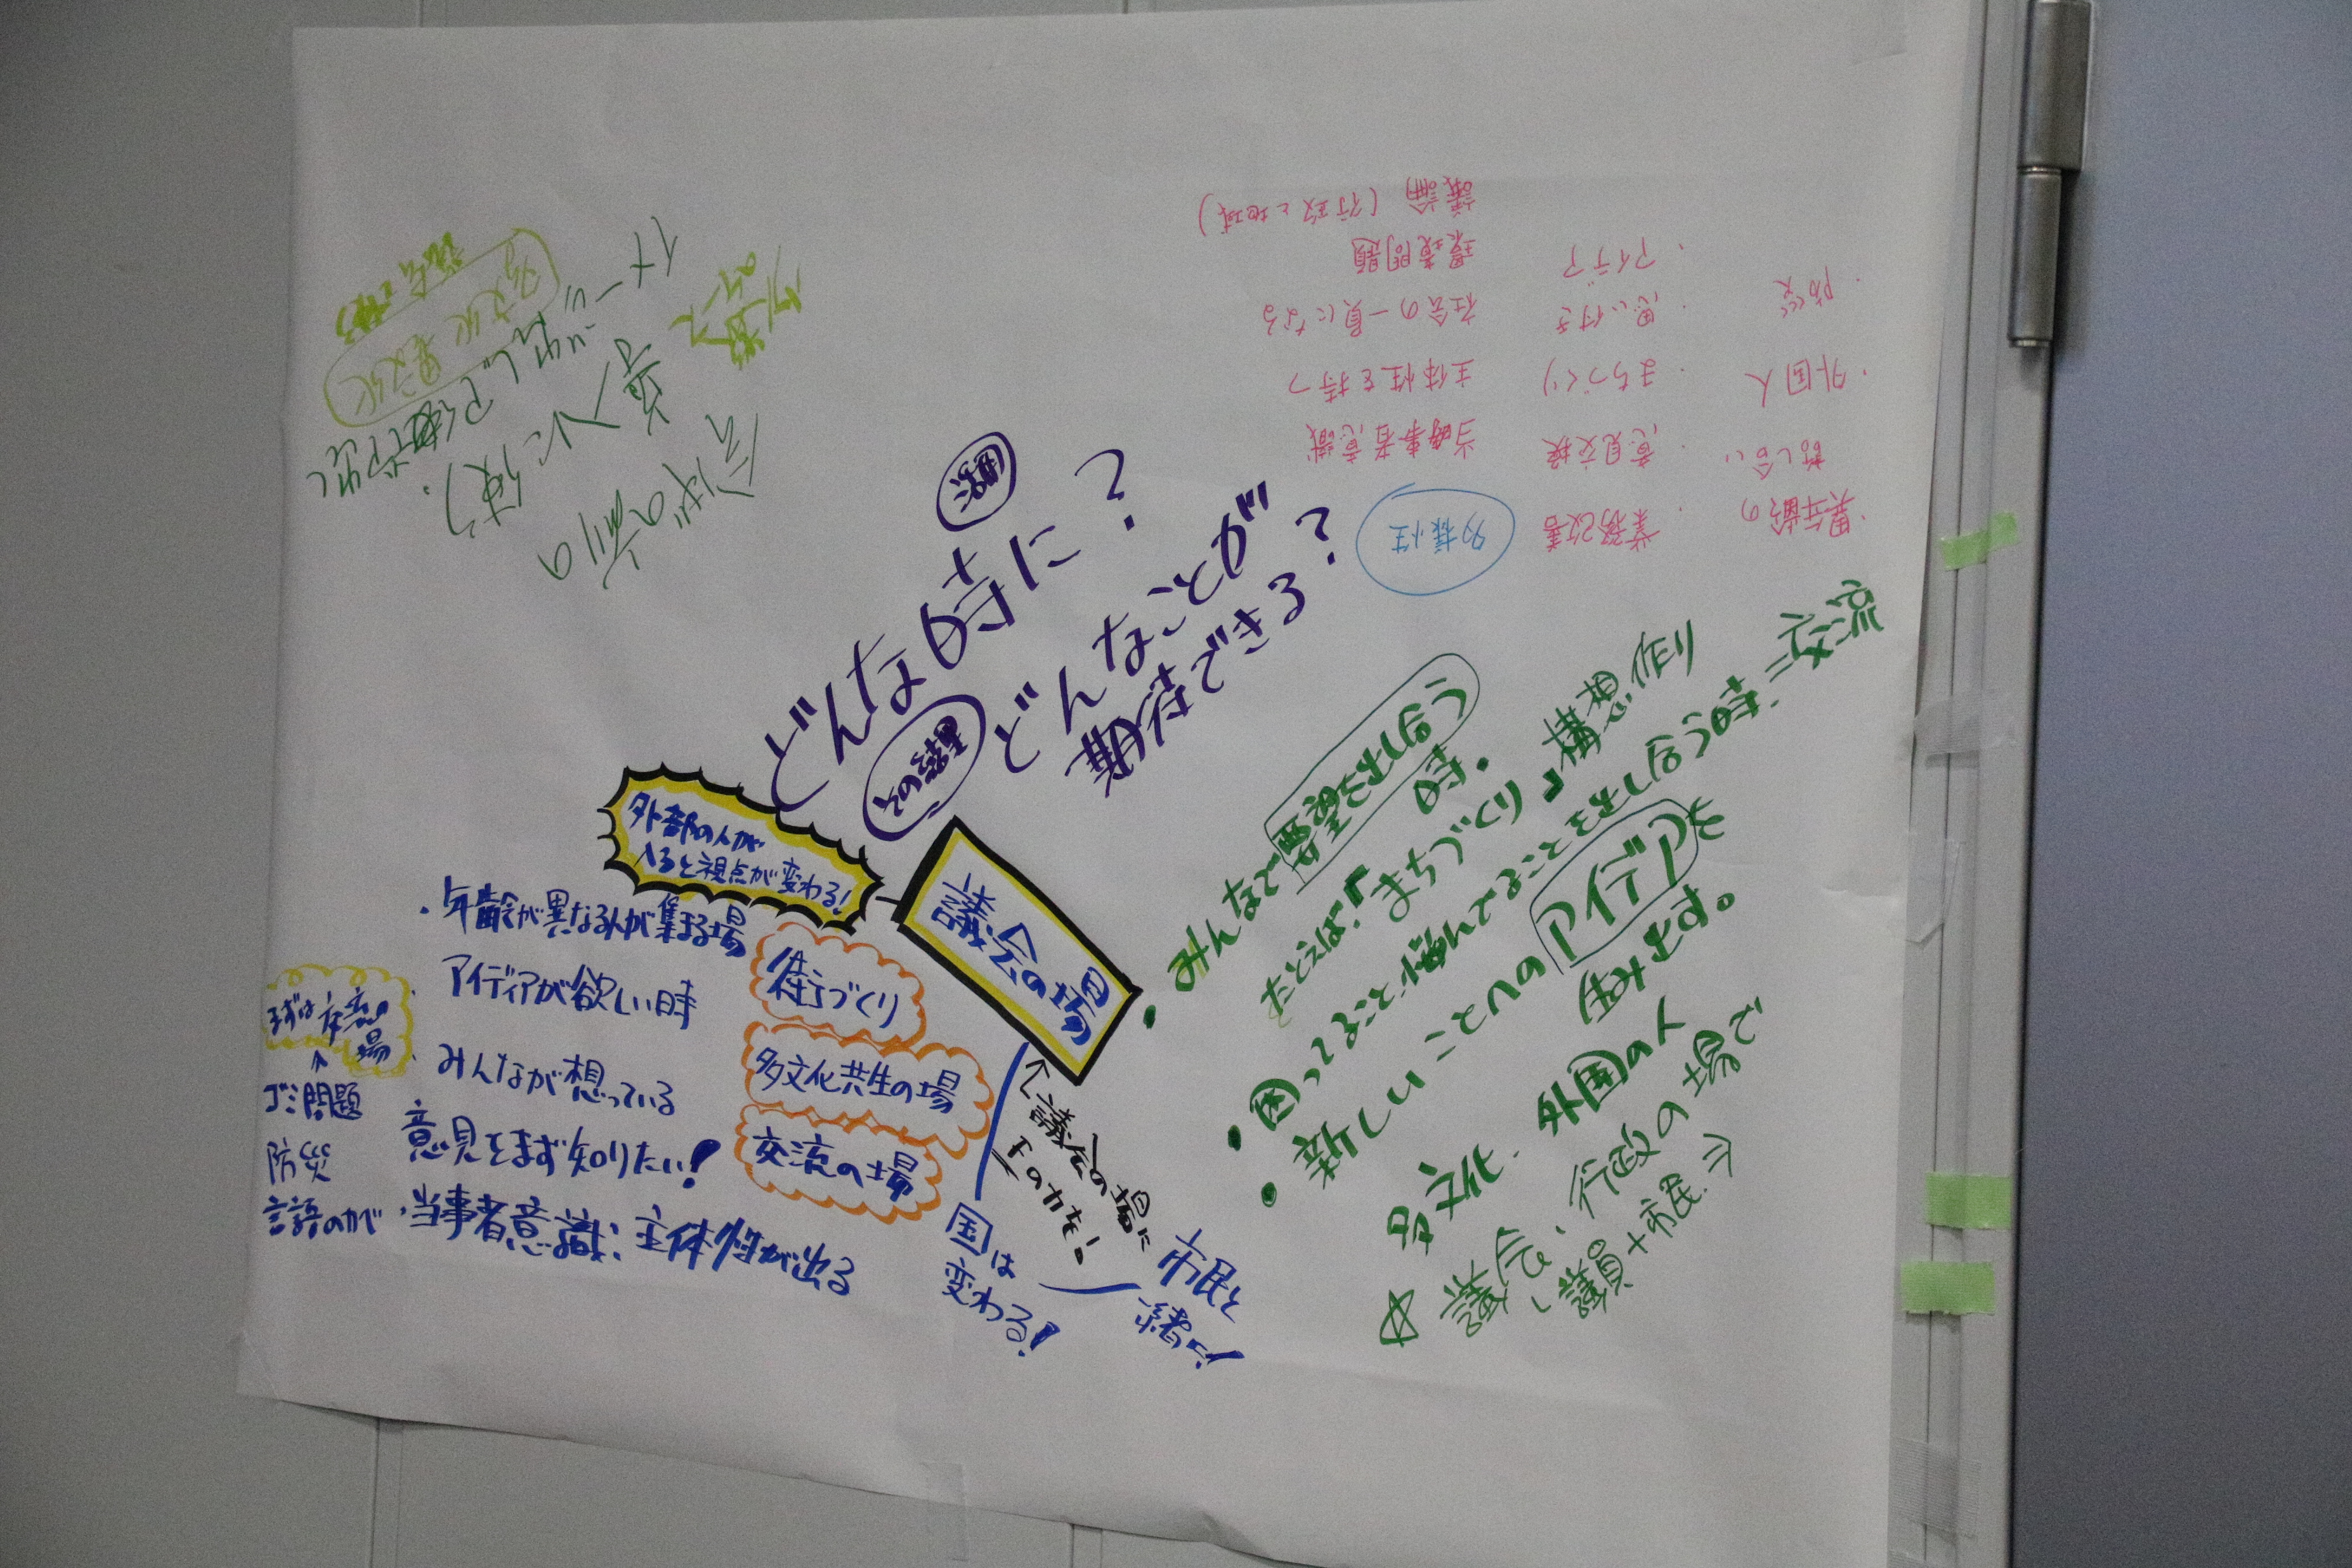 どんな時に?
どんなことが
期待できる?
外部の人が
入ると視点が変わる!
議会の場
・年齢が異なる人が集まる場
・アイディアが欲しい時
・みんなが想っている
意見をまず知りたい!
・当事者意識:主体性が出る
街づくり
多文化共生の場
交流の場
ゴミ問題
防災
国は
変わる!
市民と
一緒に
←議会の場に
・みんなで要望を出し合う
時。
たとえば『まちづくり』構想作り
・困ってること悩んでることを出し合う時=交流
・新しいことへのアイデアを
生み出す。
多文化・外国の人
☆議会、行政の場で
議員+市民⇒
・異年齢の
話し合い
・外国人
・防災
・業務改善
・意見交換
・まちづくり
・思い付き
・アイデア
多様性
当事者意識
主体性を持つ
社会の一員になる
環境問題
議論(行政と地域)
多文化 異文化